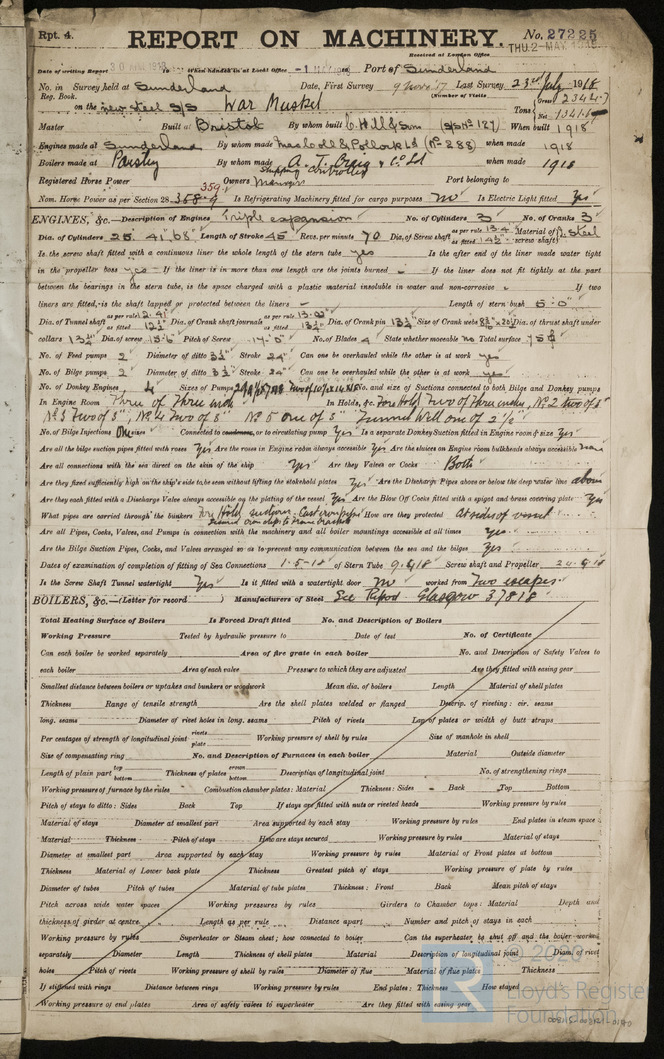 Rpt. 4.
REPORT ON MACHINERY.
No. 27225
THU. 2-MAY 1918
Received at London Office
Date of writing Report When handed in at Local Office Port of Sunderland
No. in Survey held at Sunderland Date, First Survey 9 Nov 17 Last Survey 23rd July 1918
Reg. Book. (Number of Visits
on the new steel S/S War Musket Tons Gross 2344.7 Net 1341.8
Master Built at Bristol By whom built C. Hill & Sons (S/S No 127) When built 1918
Engines made at Sunderland By whom made MacColl & Pollock Ld (No 288) when made 1918
Boilers made at Paisley By whom made A. F. Craig & Co Ld when made 1918
Registered Horse Power Owners Shipping Controller Port belonging to
Nom. Horse Power as per Section 28 358.9 359 Is Refrigerating Machinery fitted for cargo purposes No Is Electric Light fitted Yes
ENGINES, &c.—Description of Engines Triple expansion No. of Cylinders 3 No. of Cranks 3
Dia. of Cylinders 25. 41" 68" Length of Stroke 45 Revs. per minute 70 Dia. of Screw shaft as per rule 13.4 as fitted 14½" Material of screw shaft steel
Is the screw shaft fitted with a continuous liner the whole length of the stern tube yes Is the after end of the liner made water tight
in the propeller boss yes If the liner is in more than one length are the joints burned If the liner does not fit tightly at the part
between the bearings in the stern tube, is the space charged with a plastic material insoluble in water and non-corrosive If two
liners are fitted, is the shaft lapped or protected between the liners Length of stern bush 5'-0"
Dia. of Tunnel shaft as per rule as fitted Dia. of Crank shaft journals as per rule as fitted 13¼" Dia. of Crank pin 13¼" Size of Crank webs Dia. of thrust shaft under
collars 13¼" Dia. of screw Pitch of Screw 17'-0" No. of Blades 4 State whether moveable no Total surface 75
No. of Feed pumps 2 Diameter of ditto 3½" Stroke 24" Can one be overhauled while the other is at work yes
No. of Bilge pumps 2 Diameter of ditto 3½" Stroke 24" Can one be overhauled while the other is at work yes
No. of Donkey Engines 4 Sizes of Pumps No. and size of Suctions connected to both Bilge and Donkey pumps
In Engine Room Three of three inch In Holds, &c. Fore Hold Two of Three inches, No 2 two of 3"
No 3 Two of 3", No 4 Two of 3" No 5 one of 3" Tunnel Well one of 2½"
No. of Bilge Injections One sizes Connected to condenser, or to circulating pump Yes Is a separate Donkey Suction fitted in Engine room & size Yes
Are all the bilge suction pipes fitted with roses Yes Are the roses in Engine room always accessible Yes Are the sluices on Engine room bulkheads always accessible none
Are all connections with the sea direct on the skin of the ship Yes Are they Valves or Cocks Both
Are they fixed sufficiently high on the ship's side to be seen without lifting the stokehold plates Yes Are the Discharge Pipes above or below the deep water line above
Are they each fitted with a Discharge Valve always accessible on the plating of the vessel Yes Are the Blow Off Cocks fitted with a spigot and brass covering plate Yes
What pipes are carried through the bunkers Fore Hold suctions Cast iron pipes How are they protected At sides of vessel
Are all Pipes, Cocks, Valves, and Pumps in connection with the machinery and all boiler mountings accessible at all times Yes
Are the Bilge Suction Pipes, Cocks, and Valves arranged so as to prevent any communication between the sea and the bilges Yes
Dates of examination of completion of fitting of Sea Connections 1.5-18 of Stern Tube 9.4.18 Screw shaft and Propeller
Is the Screw Shaft Tunnel watertight Yes Is it fitted with a watertight door No worked from Two escapes
BOILERS, &c.—(Letter for record ) Manufacturers of Steel See Report Glasgow 37818
Total Heating Surface of Boilers Is Forced Draft fitted No. and Description of Boilers
Working Pressure Tested by hydraulic pressure to Date of test No. of Certificate
Can each boiler be worked separately Area of fire grate in each boiler No. and Description of Safety Valves to
each boiler Area of each valve Pressure to which they are adjusted Are they fitted with easing gear
Smallest distance between boilers or uptakes and bunkers or woodwork Mean dia. of boilers Length Material of shell plates
Thickness Range of tensile strength Are the shell plates welded or flanged Descrip. of riveting: cir. seams
long. seams Diameter of rivet holes in long. seams Pitch of rivets Lap of plates or width of butt straps
Per centages of strength of longitudinal joint rivets plate Working pressure of shell by rules Size of manhole in shell
Size of compensating ring No. and Description of Furnaces in each boiler Material Outside diameter
Length of plain part top bottom Thickness of plates crown bottom Description of longitudinal joint No. of strengthening rings
Working pressure of furnace by the rules Combustion chamber plates: Material Thickness: Sides Back Top Bottom
Pitch of stays to ditto: Sides Back Top If stays are fitted with nuts or riveted heads Working pressure by rules
Material of stays Diameter at smallest part Area supported by each stay Working pressure by rules End plates in steam space:
Material Thickness Pitch of stays How are stays secured Working pressure by rules Material of stays
Diameter at smallest part Area supported by each stay Working pressure by rules Material of Front plates at bottom
Thickness Material of Lower back plate Thickness Greatest pitch of stays Working pressure of plate by rules
Diameter of tubes Pitch of tubes Material of tube plates Thickness: Front Back Mean pitch of stays
Pitch across wide water spaces Working pressures by rules Girders to Chamber tops: Material Depth and
thickness of girder at centre Length as per rule Distance apart Number and pitch of stays in each
Working pressure by rules Superheater or Steam chest; how connected to boiler Can the superheater be shut off and the boiler worked
separately Diameter Length Thickness of shell plates Material Description of longitudinal joint Diam. of rivet
holes Pitch of rivets Working pressure of shell by rules Diameter of flue Material of flue plates Thickness
If stiffened with rings Distance between rings Working pressure by rules End plates: Thickness How stayed
Working pressure of end plates Area of safety valves to superheater Are they fitted with easing gear
© 2020
Lloyd's Register
Foundation